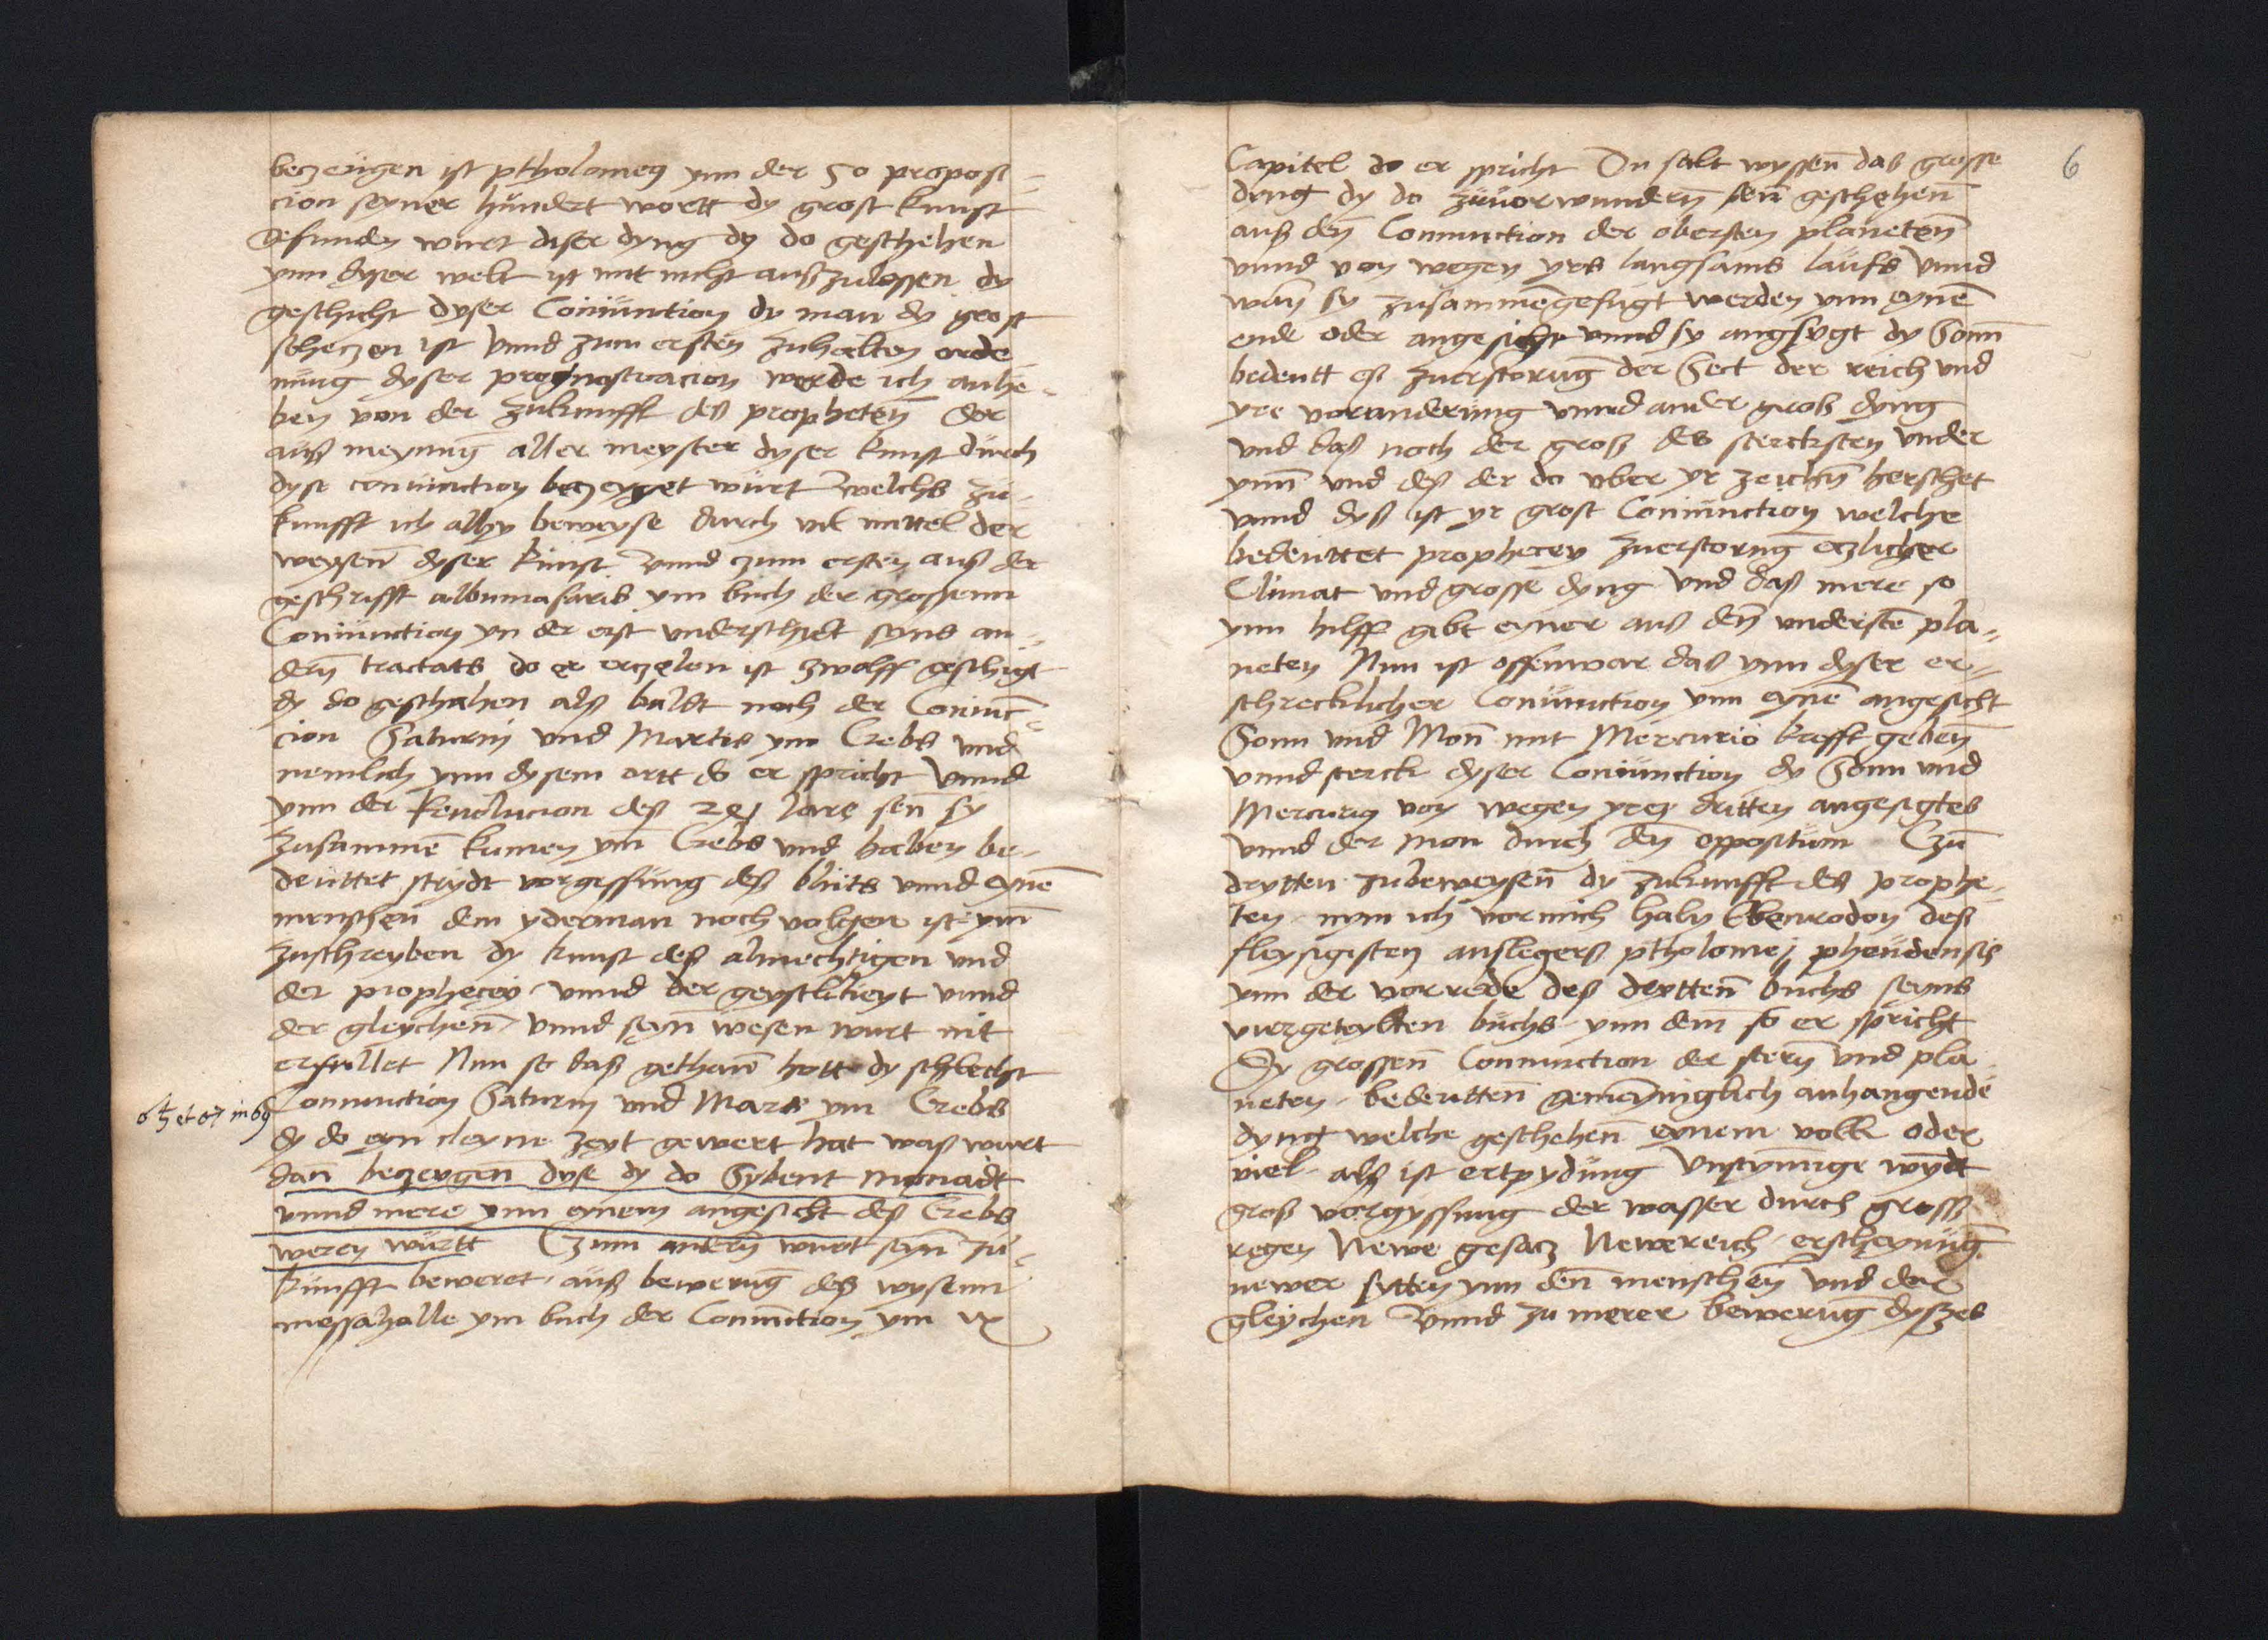 beczeugen ist ptholomeg ynn der 50 propost=
cion seyner hundert wortt dy grost kunst
gefunden wurt diser dyng dy do geschehen
ynn dyser welt ist mit nicht auß zulossen dy
geschicht dyser Coniunction dy man dy grost
scheczen ist Vnnd zum ersten zuhalten orde
nung dyser prognosticacion werde ich anhe=
ben von der zukunfft deß prophetenn der
auß meynung aller meyster dyser kunst durch
dyse coniunction beczeyget wurt welchs zu=
kunfft ich alhy beweyse durch vil mittel der
weysenn dyser kunst Vnnd czum ersten auß der
geschrifft albumasaris ym buch der grossenn
Coniunction yn der erst underschidt seins an=
dern tractats do er erczelen ist zwolff geschigt
dy do geschahen alß baldt noch der Coniunc=
cion Saturni vnd Martis ym Crebs vnd
nemlich ynn dysem ortt do er spricht Vnnd
ynn der Reuolucion deß 291 Jare sen sy
zusammē kumen ym Crebs vnd haben be=
deuttet streydt vorgessung deß bluts vnnd eynē
menschen dem yderman noch volgen ist ym̄
zuschreyben dy kunst deß almechtigen vnd
der prophecey vnnd der geystlikeyt vnnd
der gleychenn Vnnd seyn wesen wurt nit
erfullet Nun so daß gethann hott dy schlecht
☌ ♄ et ♂ in ♋
Coniunction Saturni vnd Martis ym Crebs
dy do eyn cleyne zeyt gewert hat waß wurt
dann beczeygenn dyse dy do Sybent monadt
vnnd mere ynn eynem angesicht deß Crebs
weren wurtt Czum andern wurt seyn zu=
kunfft beweret auß bewerung deß wysenn
messahalle ym buch der Coniunction ym ix
6
Capitel do er spricht Du salt wyssenn daß grosse
dyng dy do zuuorwundern senn geschehenn
auß den Coniunction der obersten planetenn
vnnd von wegen yrs langsams laufs Vnnd
wan sy zusammēgefugt werden ynn eynē
ende oder angesicht vnnd sy angsygt dy Sonn
bedeutt eß zuerstorung der Sect der reich vnd
yre voranderung vnnd ander groß dyng
Vnd daß noch der groß des stercksten vnder
ynn vnd deß der do vber yr zeichn herschet
vnnd dyß ist yr grost Coniunction welche
bedeuttet prophecey zuerstorung eczlicher
Climat vnd grosse dyng Vnd daß mere so
ynn hilff gibt eyner auß den understē pla=
neten Nun ist offenwar daß ynn dyser er=
schrecklicher Coniunction ynn eynē angesicht
Sonn vnd Mon mit Mercurio krefft gebenn
vnnd sterck dyser Coniunction dy Sonn vnd
Mercurig von wegen yreß dritten angesigtes
vnnd der mon durch den oppositum Czū
drytten zubeweysenn dy zukunfft deß prophe=
ten nym ich vor mich haly Ebenrodon deß
fleysigisten auslegerß ptholomej pheudensis
ynn der vorrede deß dryttenn buchs seyns
viergeteylten buchs ynn dem so er spricht
Dy grossenn Coniunction der stern vnd pla
neten bedeutten gemeyniglich anhangende
dyng welche geschehenn eynem volk oder
viel alß ist ertpydung Vnsynnige wyndt
groß vorgyssung der wasser durch gross
regen Newe gesacz Newereich erscheynung
newer sytten ynn denn menschen vnd der
gleychen Vnnd zu merer bewerung dyßes